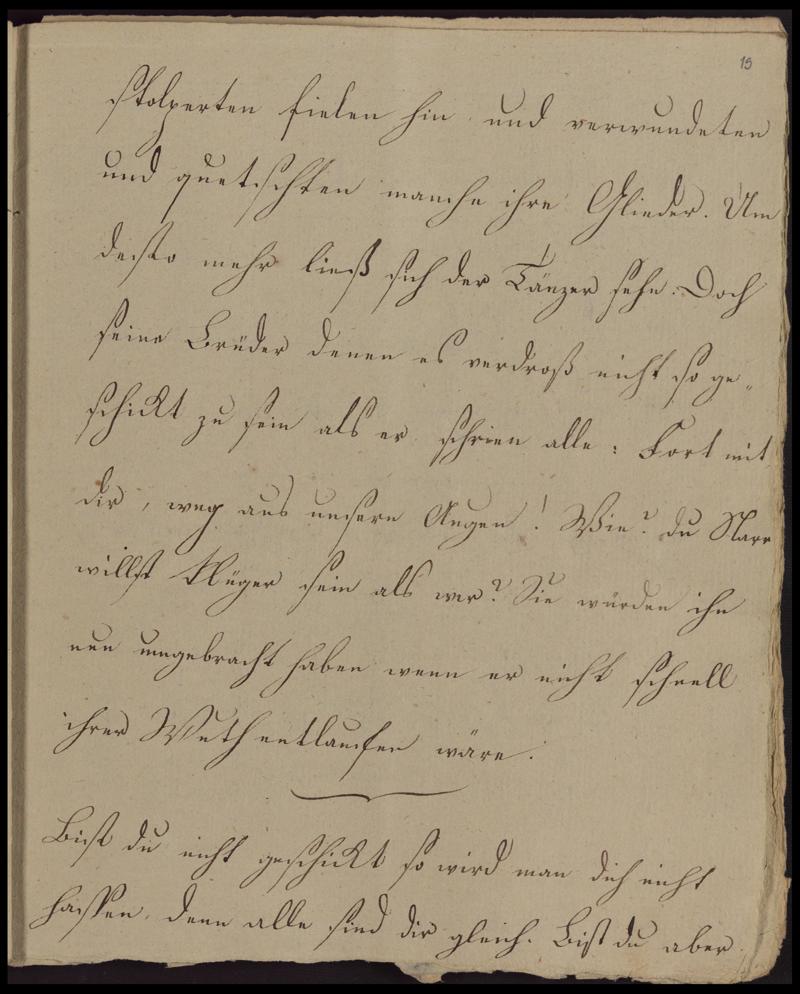 15
stolperten fielen hin und verwundeten
und quetschten manche ihre Glieder. Um
desto mehr ließ sich der Tänzer sehn. Doch
seine Brüder denen es verdroß nicht so ge„
schickt zu sein als er schrien alle: Fort mit
dir, weg aus unsern Augen! Wie? du Narr
willst klüger sein als wir? Sie würden ihn
nun umgebracht haben wenn er nicht schnell
ihrer Wuth entlaufen wäre.
Bist du nicht geschickt so wird man dich nicht
hassen, denn alle sind dir gleich. Bist du aber